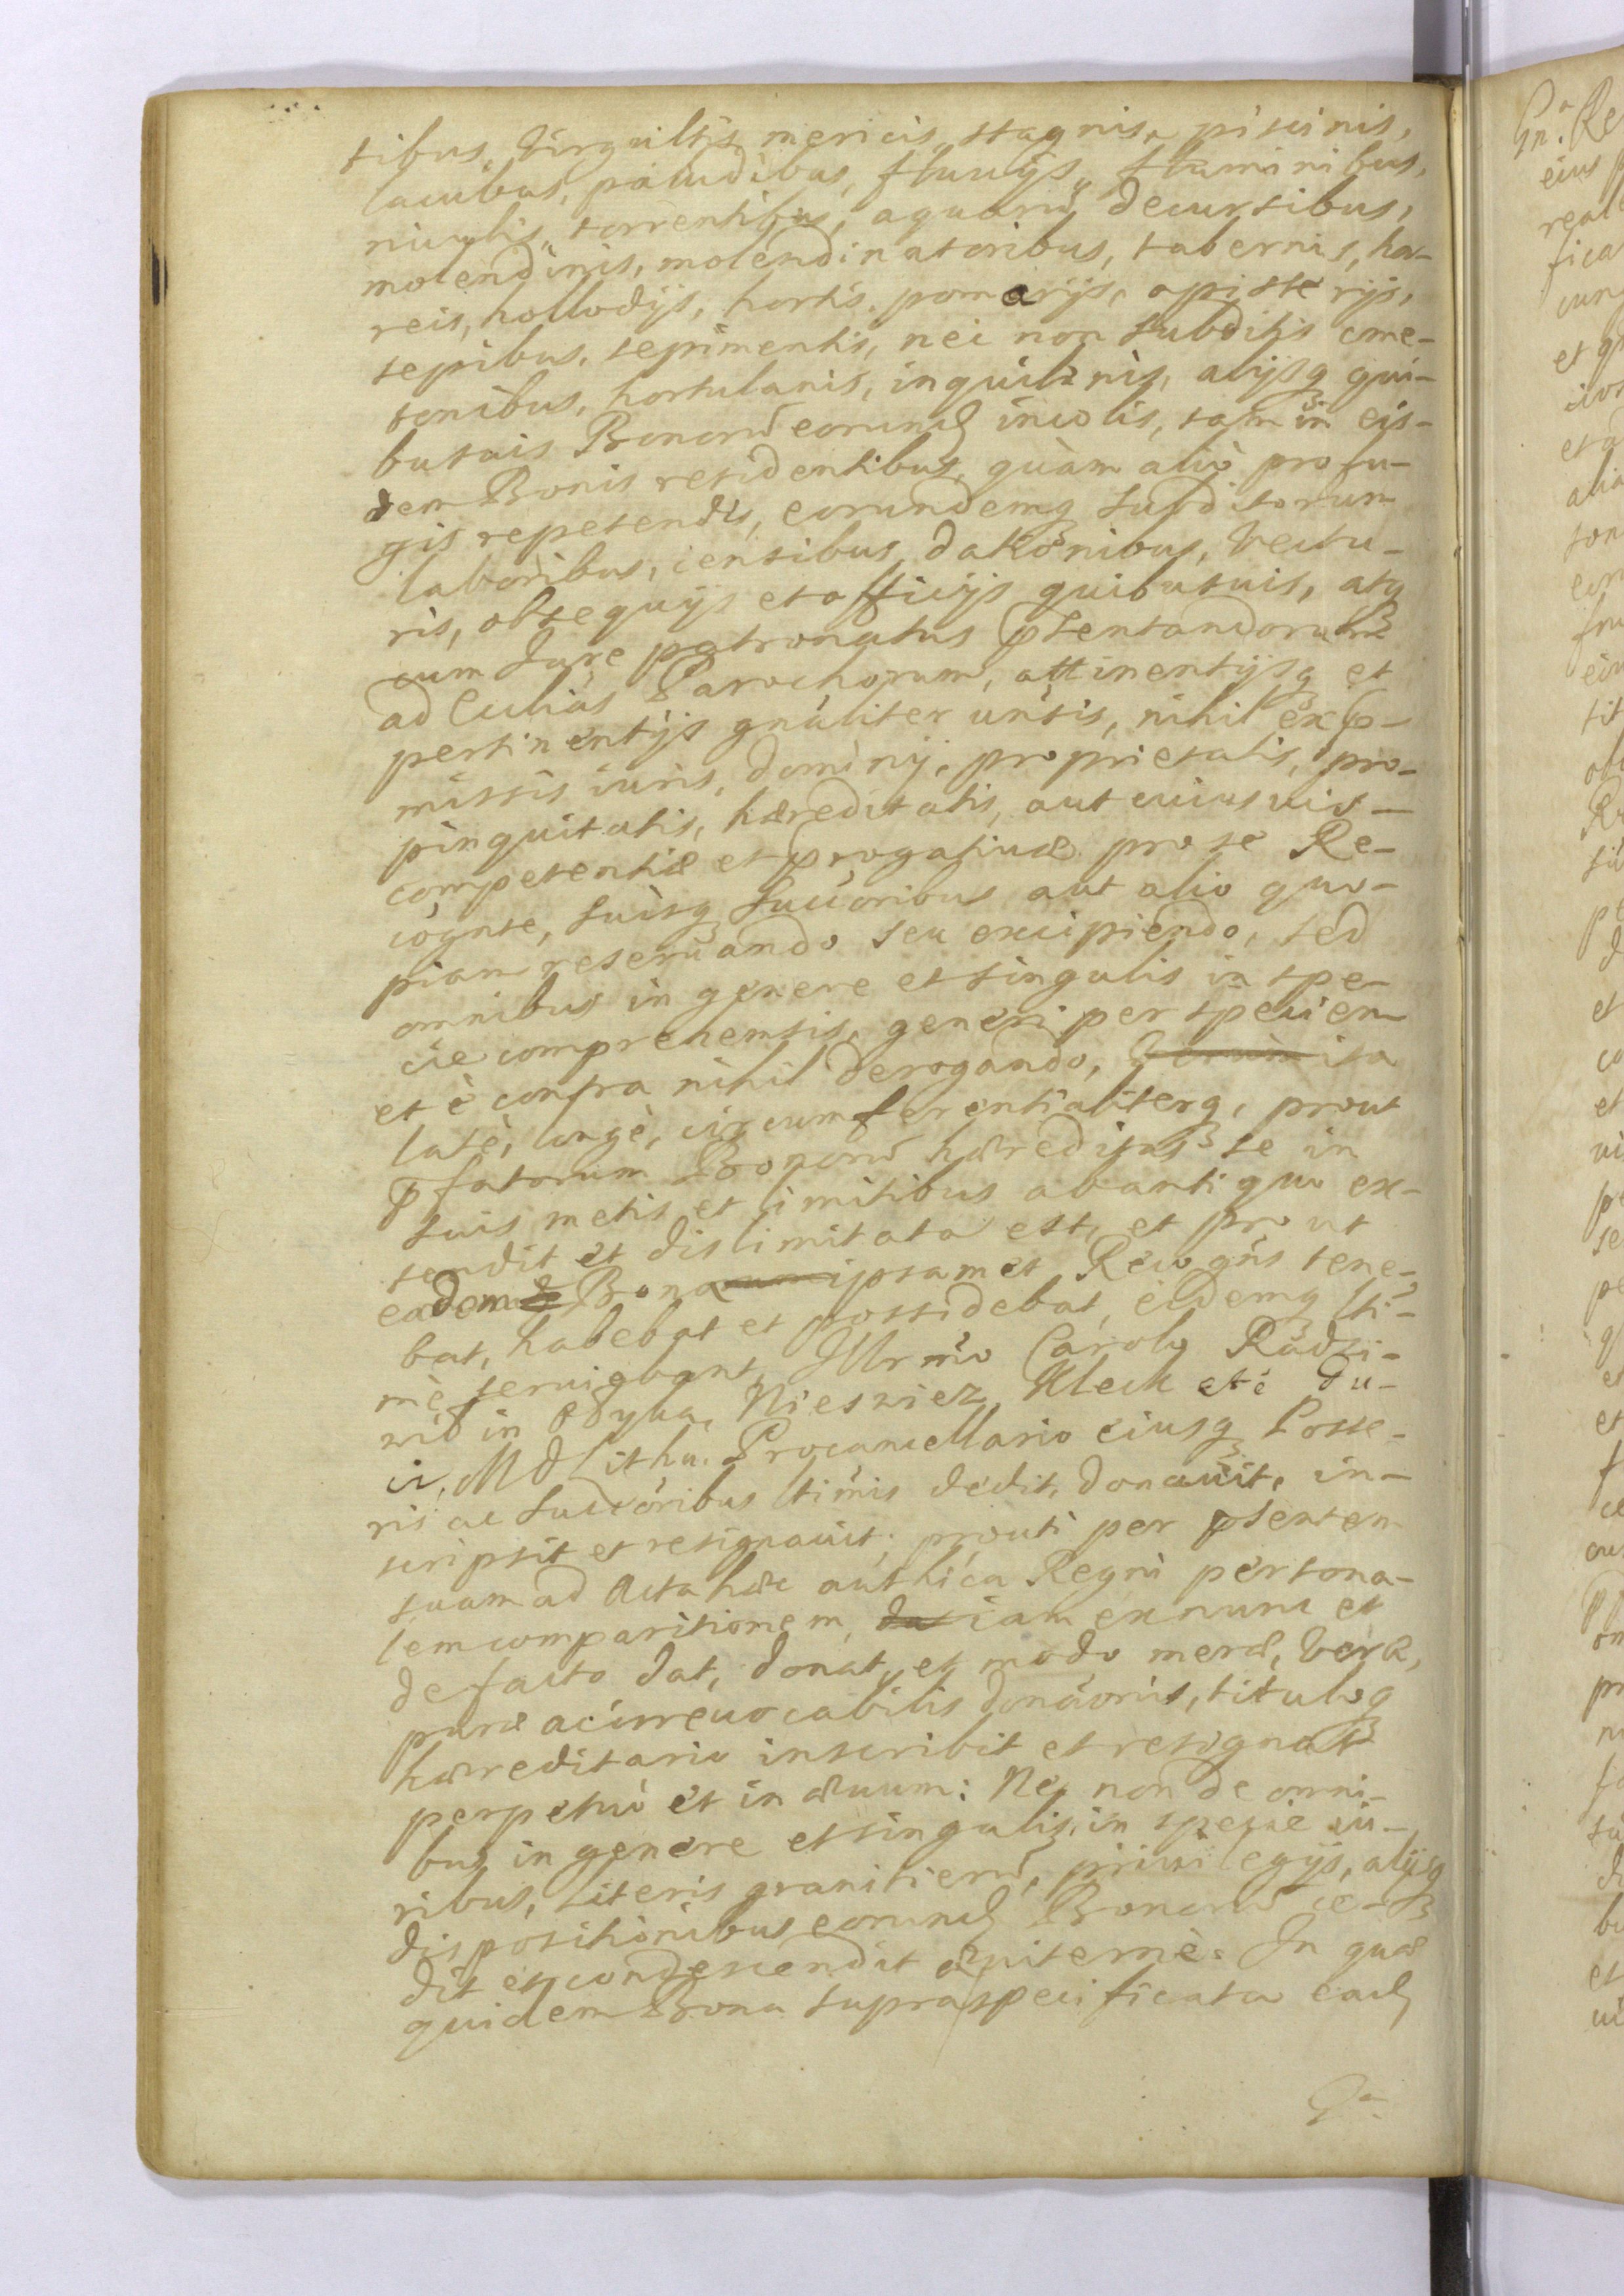 tibus, Virgultis, mericis, stagnis, piscinis,
lacubus, paludibus, fluuijs, fluminibus,
riuulis, torrentibus, aquarũ decursibus,
molendinis, molendinatoribus, tabernis, hor-
reis, hollodijs, hortis, pomarijs, apisterijs,
sepibus, sepimentis, nec non subditis cme-
tonibus, hortulanis, inquilinis, alijsq qui-
busuis Bonorũ eorund incolis, tam in eis-
dem Bonis residentibus, quàm aliò profu-
gis repetendis, eorundemq subditorum
laboribus, censibus, dationibus, Vectu-
ris, obsequijs et officijs quibusuis, atq
cum Jure patronatus pſentandorum
ad Ecclias Parochorum, attinentijsq et
pertinentijs gnáliter uńsis, nihil ex p-
missis iuris, dominij, proprietatis, pro-
pinquitatis, hæreditatis, aut cuiusuis
competentiæ et prογatiuæ pro se Re-
cognte, suisq succoribus aut alio quo-
piam reseruando seu excipiendo, sed
omnibus in genere et singulis in spe-
cie comprehensis, generi per speciem
et è contra nihil derogando, ita
latè, longè, circumferentialiterq, prout
pfatorum Bonorũ hæreditas se in
suis metis et limitibus abantiquo ex-
tendit et dislimitata est, et prout
eadem Bona ipsamet Recogńs tene-
bat, habebat et possidebat, eidemq lti-
mè seruiebant, Illrmo Carolo Radzi-
wił in Ołyka, Nieswiez, Kleck etć Du-
ci, M D Lithu. Procancellario eiusq Posse-
ris ac succóribus ltimis dedit, donauit, in-
scripsit et resignauit; prouti per pſentem
suam ad Acta hæc authica Regni persona-
lem comparitionem, dat iam exnunc et
de facto dat, donat, et modo meræ, Veræ,
puræ ac irreuocabilis donáonis, tituloq
hæreditario inscribit et resignat
perpetuò et in æuum: Nec non de omni-
bus in genere et singulis, in specie iu-
ribus, literis granitierũ, priuilegijs, alijsq
dispositionibus eorund Bonorũ ce-
dit et condescendit æuiternè. In quæ
quidem Bona supraspecificata ead
Gn